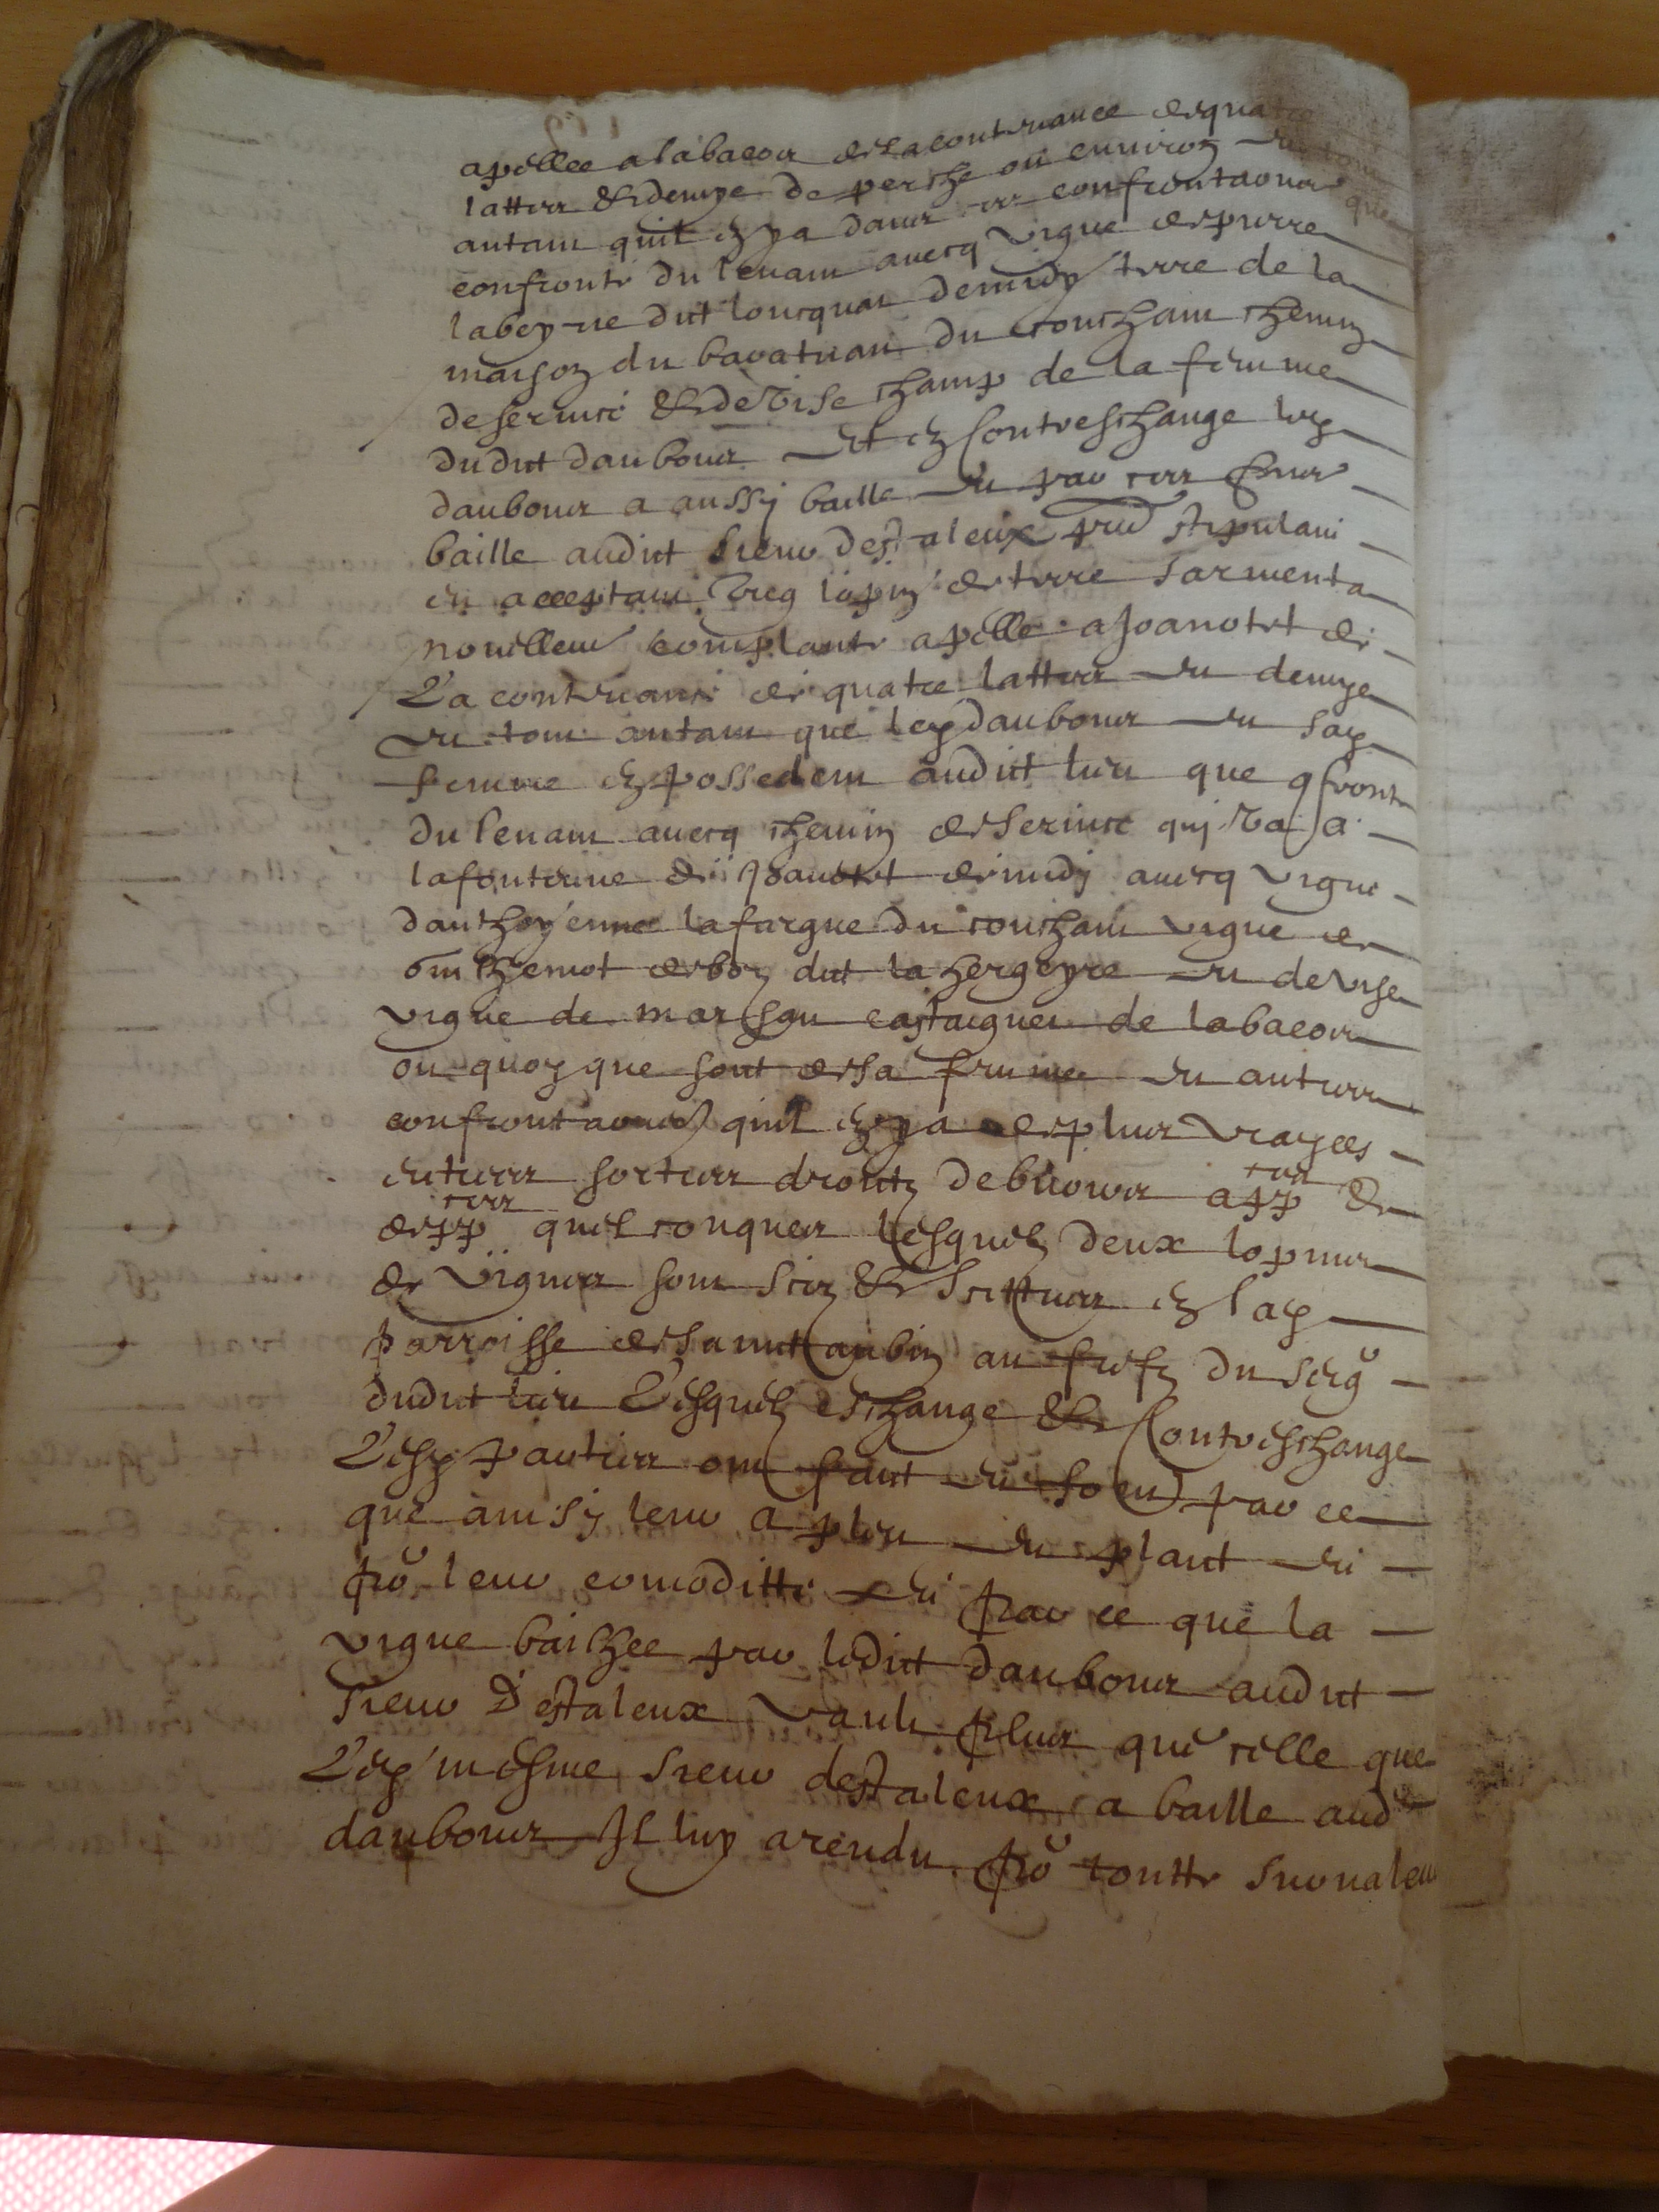 apellee a labacon de la contenance de quatre
lattes et demye de perche ou environ et tout
autant quil en y a dans ses confrontaons que
confronte du levant avecq vigne de pierre
labeyrie dit loucquat de midy terre de la
maison du bavatnau du couchant chemin
de service et de vise champ de la femme
dudit daubons et en contreschange led
daubons a aussy baille et par ces pntes
baille audict sieur destaleux pnt stipulant
et acceptant ung lopin de terre sarmenta
nouellemt complante apelle a Joanotet de
la contenance de quatre lattes et demye
et tout autant que led daubons et sa
femme en possedent audict lieu que qfronte
du levant avecq chemin de service quj va a
la fontenne de Joanotet de midj avecq vigne
danthoyenne lafargue du couchant vigne de
guilhemot de bon dict la hergeyre et de vise
vigne de marison castaignet de labacon
ou quoy que soit de sa femme et autres
confrontaons quil en y a de plus vrayees
entrees sorties droitz debvoirs app ces et
depp ces quelconques Lesquelz deux lopins
de vignes sont sis et scittues en lad
parroisse de sainct aubin au fiefz du seigr
dudict lieu Lesquelz eschange et Contreschange
Lesd parties ont faict et font par ce
que ainsy leur a pleu et plaict et
pro leur comoditte et par ce que la
vigne bailhee par ledict daubons audict
sieur d'estaleux vault plus que celle que
led mesme sieur destaleux a baille aud
daubons Il luy a rendu pro toutte suvaleur